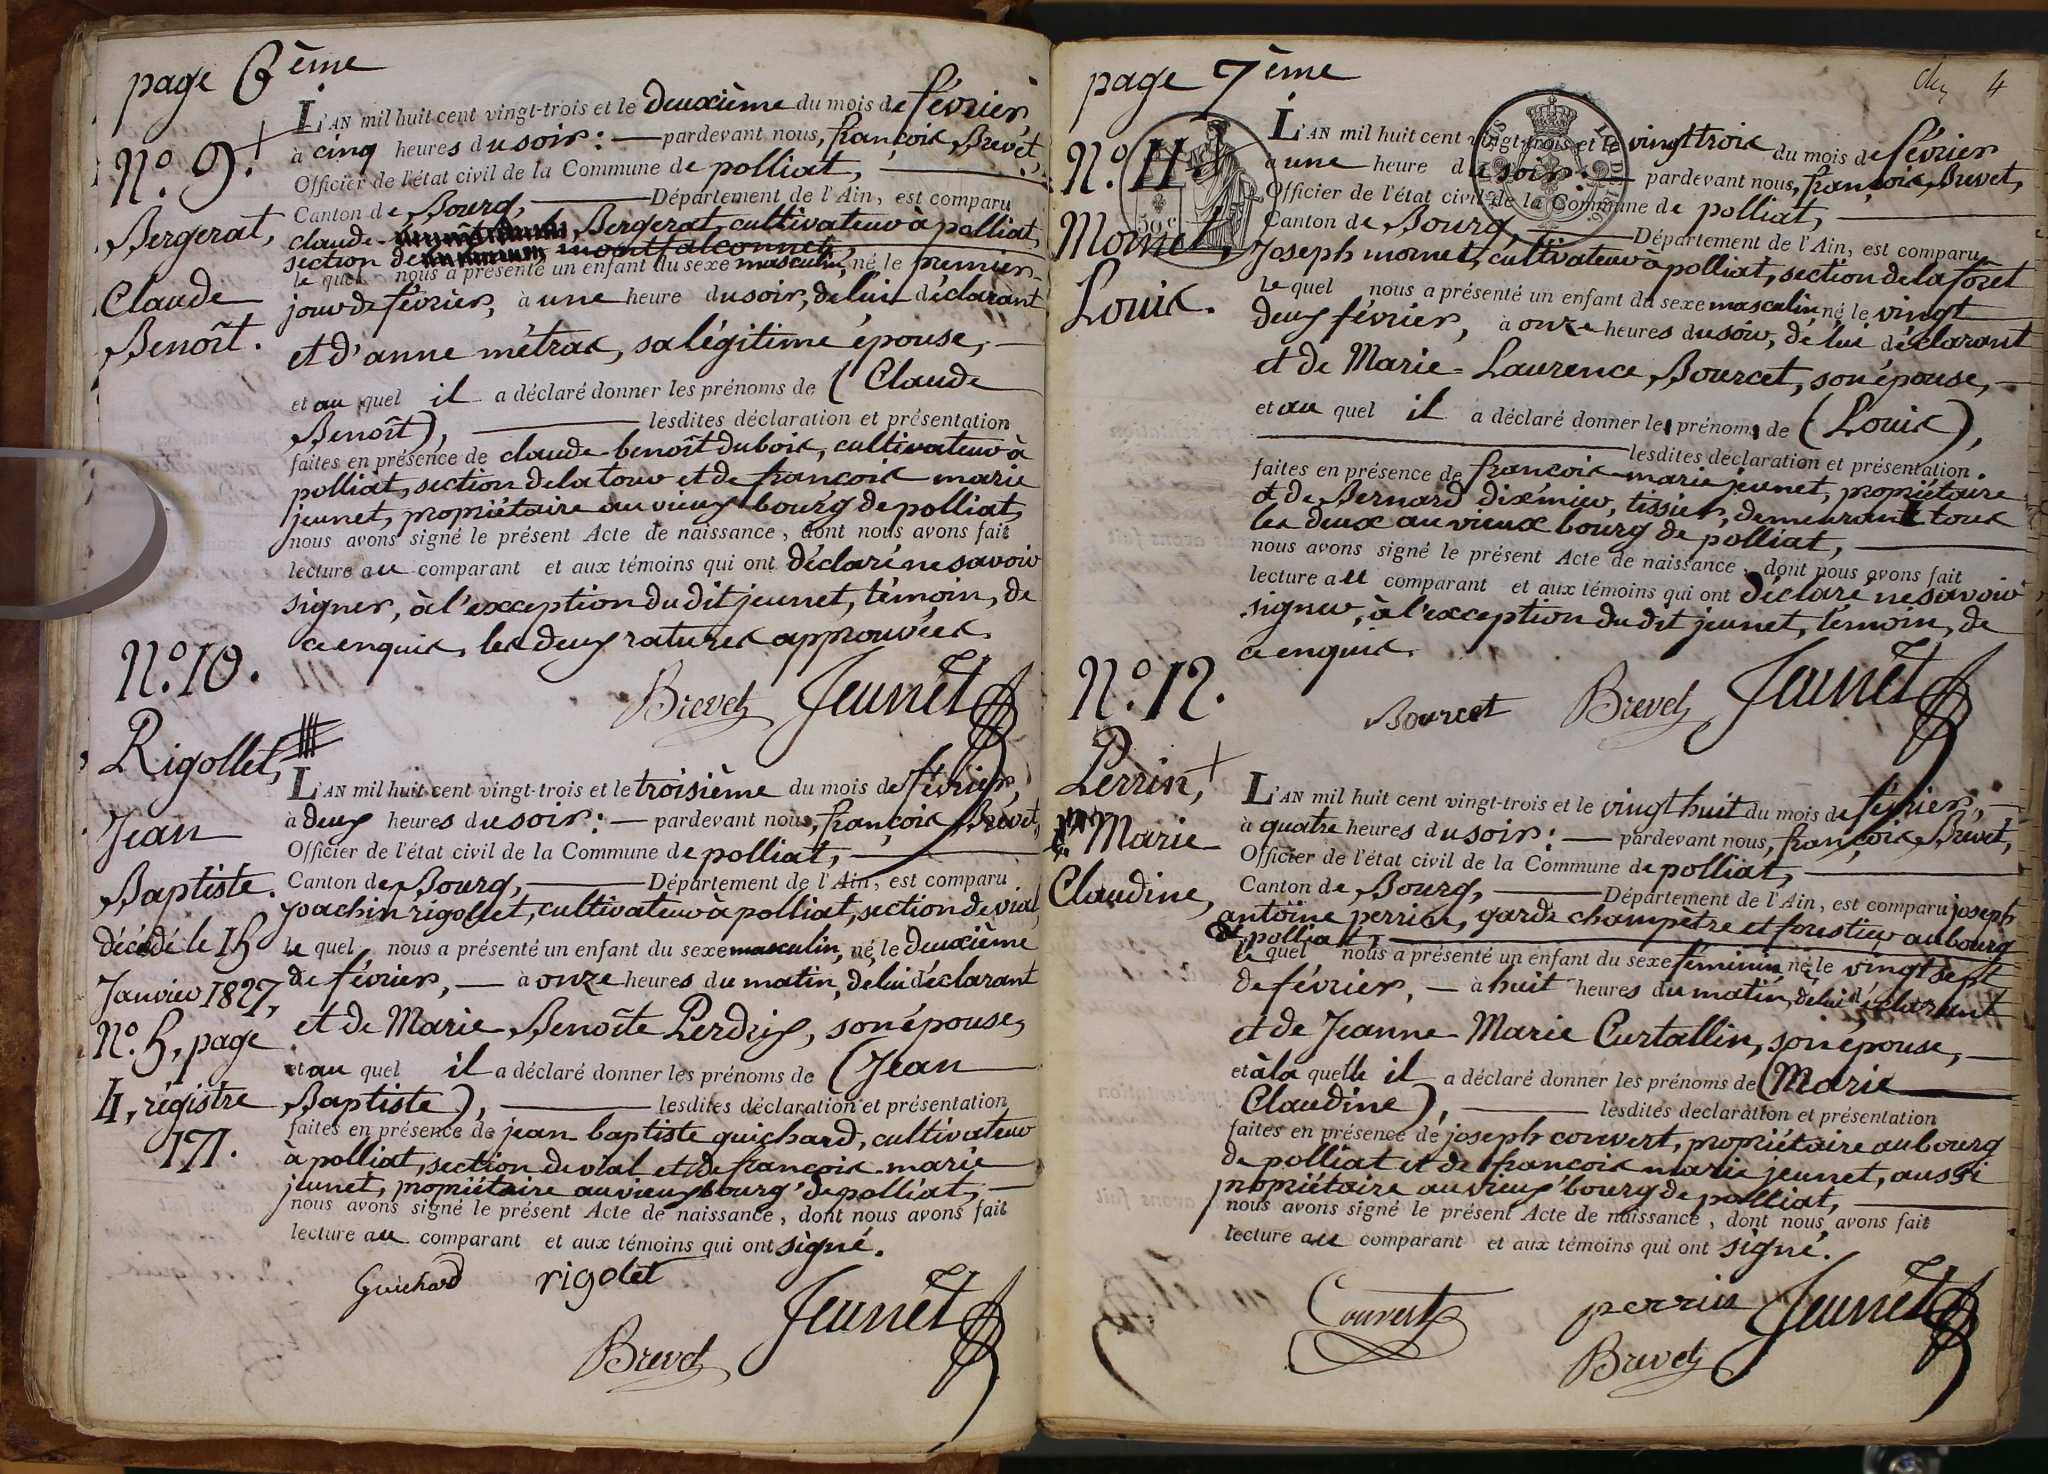 page 6ème
N°. 9.
Bergerat,
Claude
Benoît.
L'AN mil huit cent vingt-trois et le Deuxième du mois de février,
à cinq heures du soir : — pardevant nous, françois Brevet,
Officier de l'état civil de la Commune de polliat,
Canton de Bourg, Département de l'Ain, est comparu
claude Bergerat, cultivateur à polliat,
section de montfalconnet,
le quel nous a présenté un enfant du sexe masculin, né le premier
jour de février, à une heure du soir, de lui déclarant
et d'anne métras, sa légitime épouse,
et au quel il a déclaré donner les prénoms de (Claude
Benoît), lesdites déclaration et présentation
faites en présence de claude-benoît dubois, cultivateur à
polliat, section de la tour et de françois marie
jeunet, propriétaire au vieux bourg de polliat,
nous avons signé le présent Acte de naissance, dont nous avons fait
lecture au comparant et aux témoins qui ont déclaré ne savoir
signer, à l'exception du dit jeunet, témoin, de
ce enquis, les deux ratures approuvées.
Brevet Jeunet
N°. 10.
Rigollet,
Jean
Baptiste.
décédé le 15
Janvier 1827,
N°. 5, page
4, régistre
171.
L'AN mil huit cent vingt-trois et le troisième du mois de février,
à deux heures du soir : — pardevant nous, françois Brevet,
Officier de l'état civil de la Commune de polliat,
Canton de Bourg, Département de l'Ain, est comparu
Joachin rigollet, cultivateur à polliat, section de vial,
le quel nous a présenté un enfant du sexe masculin, né le deuxième
de février, — à onze heures du matin, de lui déclarant
et de Marie Benoîte Perdrix, son épouse,
et au quel il a déclaré donner les prénoms de (Jean
Baptiste), lesdites déclaration et présentation
faites en présence de jean baptiste guichard, cultivateur
à polliat, section de vial et de françois-marie
jeunet, propriétaire au vieux bourg de polliat,
nous avons signé le présent Acte de naissance, dont nous avons fait
lecture au comparant et aux témoins qui ont signé.
Guichard rigolet
Jeunet
Brevet
page 7ème
4
N°. 11
Mornet,
Louis.
50 c
L'AN mil huit cent vingt-trois et le vingt trois du mois de février
à une heure du soir : — pardevant nous, françois Brevet,
Officier de l'état civil de la Commune de polliat,
Canton de Bourg, Département de l'Ain, est comparu
Joseph mornet, cultivateur à polliat, section de la forêt
le quel nous a présenté un enfant du sexe masculin né le vingt
deux février, à onze heures du soir, de lui déclarant
et de Marie-Laurence Bourcet, son épouse,
et au quel il a déclaré donner les prénoms de (Louis),
lesdites déclaration et présentation
faites en présence de françois-marie jeunet, propriétaire
et de Bernard diximier, tissier, demeurant tous
les deux au vieux bourg de polliat,
nous avons signé le présent Acte de naissance, dont nous avons fait
lecture au comparant et aux témoins qui ont déclaré ne savoir
signer, à l'exception du dit jeunet, témoin, de
ce enquis.
Bourcet Brevet Jeunet
N°. 12.
Perrin,
Marie
Claudine,
L'AN mil huit cent vingt-trois et le vingt huit du mois de février,
à quatre heures du soir : — pardevant nous, françois Brevet,
Officier de l'état civil de la Commune de polliat,
Canton de Bourg, Département de l'Ain, est comparu joseph
antoine perrin, garde champêtre et forestier au bourg
de polliat,
le quel nous a présenté un enfant du sexe féminin, né le vingt sept
de février, — à huit heures du matin, de lui déclarant
et de Jeanne-Marie Curtallin, son épouse,
et à la quelle il a déclaré donner les prénoms de (Marie
Claudine), lesdites déclaration et présentation
faites en présence de joseph convert, propriétaire au bourg
de polliat et de françois marie jeunet, aussi
propriétaire au vieux bourg de polliat,
nous avons signé le présent Acte de naissance, dont nous avons fait
lecture au comparant et aux témoins qui ont signé.
Convert perrin Jeunet
Brevet